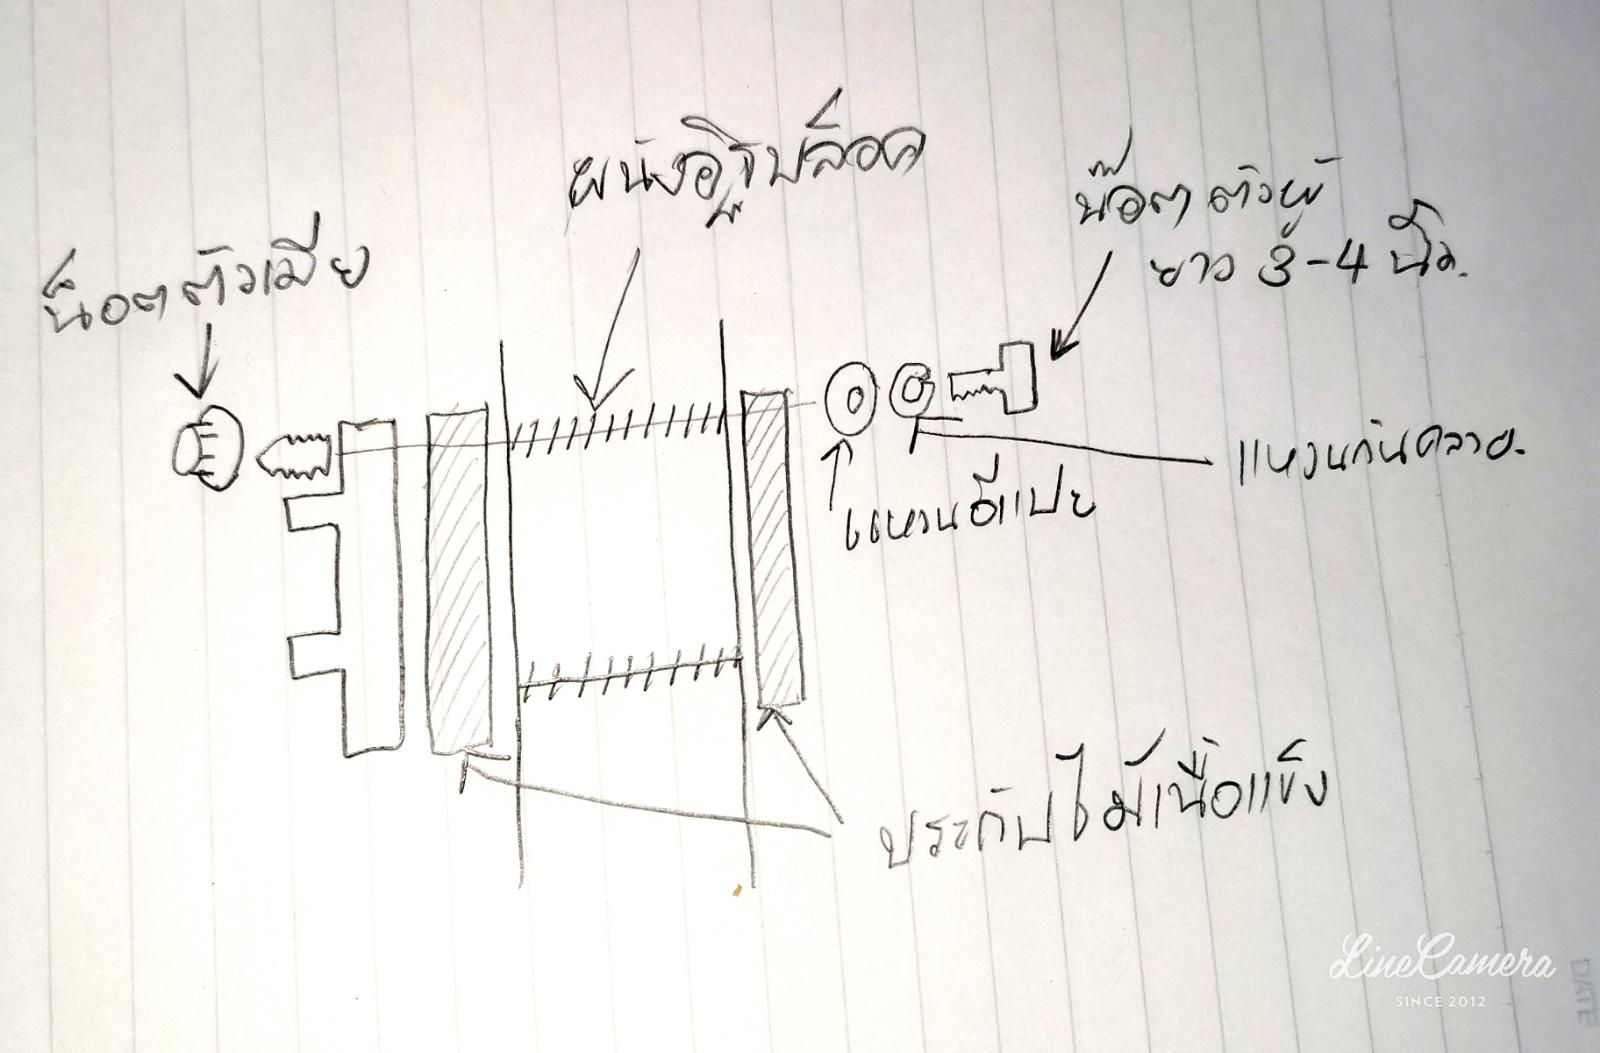 ผนังอิฐบล็อค
น๊อตตัวผู้
ยาว 3-4 นิ้ว.
น็อตตัวเมีย
แหวนกันคลาย.
แหวนอีแปะ
ประกับไม้เนื้อแข็ง
LineCamera
SINCE 2012
DATE